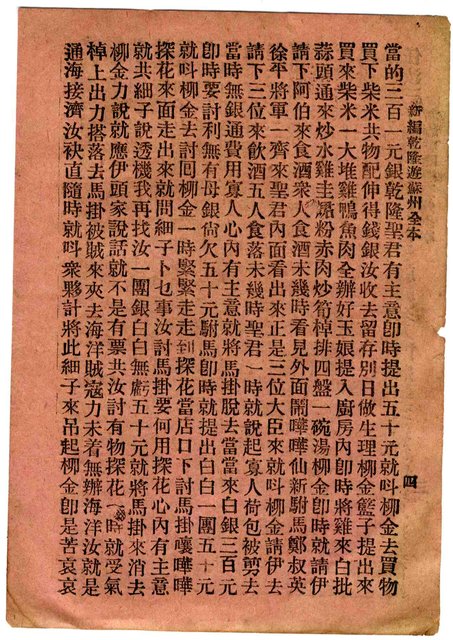 新編乾隆遊蘇州全本
四
當的三百一元銀乾隆聖君有主意即時提出五十元就呌柳金去買物
買下柴米共物配伸得錢銀汝收去留存別日做生理柳金籃子提出來
買來柴米一大堆雞鴨魚肉全辦好玉娘提入廚房內即時將雞來白批
蒜頭通來炒水雞圭粉赤肉炒筍棹排四盤一碗湯柳金即時就請伊
請下阿伯來食酒衆人食酒未幾時看見外面鬧嘩嘩仙新駙馬鄭叔英
徐平將軍一齊來聖君內面看出來正是三位大臣來就呌柳金請伊去
請下三位來飲酒五人食落未幾時聖君一時就說起寡人荷包被剪去
當時無銀通費用寡人心內有主意就將馬掛脫去當當來白銀三百元
即時要討利無有母銀尙欠五十元駙馬即時就提出白白一團五十元
就呌柳金去討囘柳金一時緊緊走走到探花當店口下討馬掛嚷嘩嘩
探花來面走出來就問細子卜乜事汝討馬掛要何用探花心內有主意
就共細子說透機我再找汝一團銀白白無虧五十元就將馬掛來消去
柳金力說就應伊頭家說話就不是有票共汝討有物探花一時就受氣
棹上出力搭落去馬掛被賊來夾去海洋賊寇力未着無辦海洋汝就是
通海接濟汝袂直隨時就呌衆夥計將此細子來吊起柳金即是苦哀哀